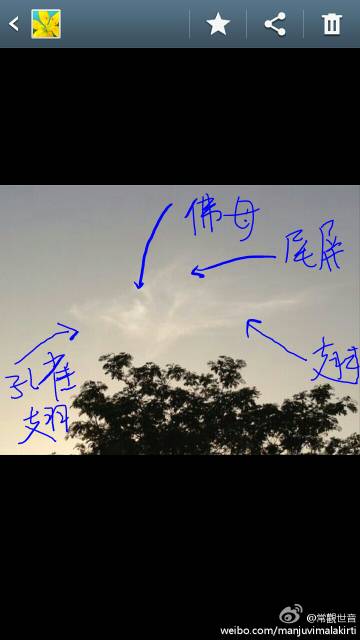 佛母
尾屏
孔雀
翅
翅
@常觀世音
weibo.com/manjuvimalakirti